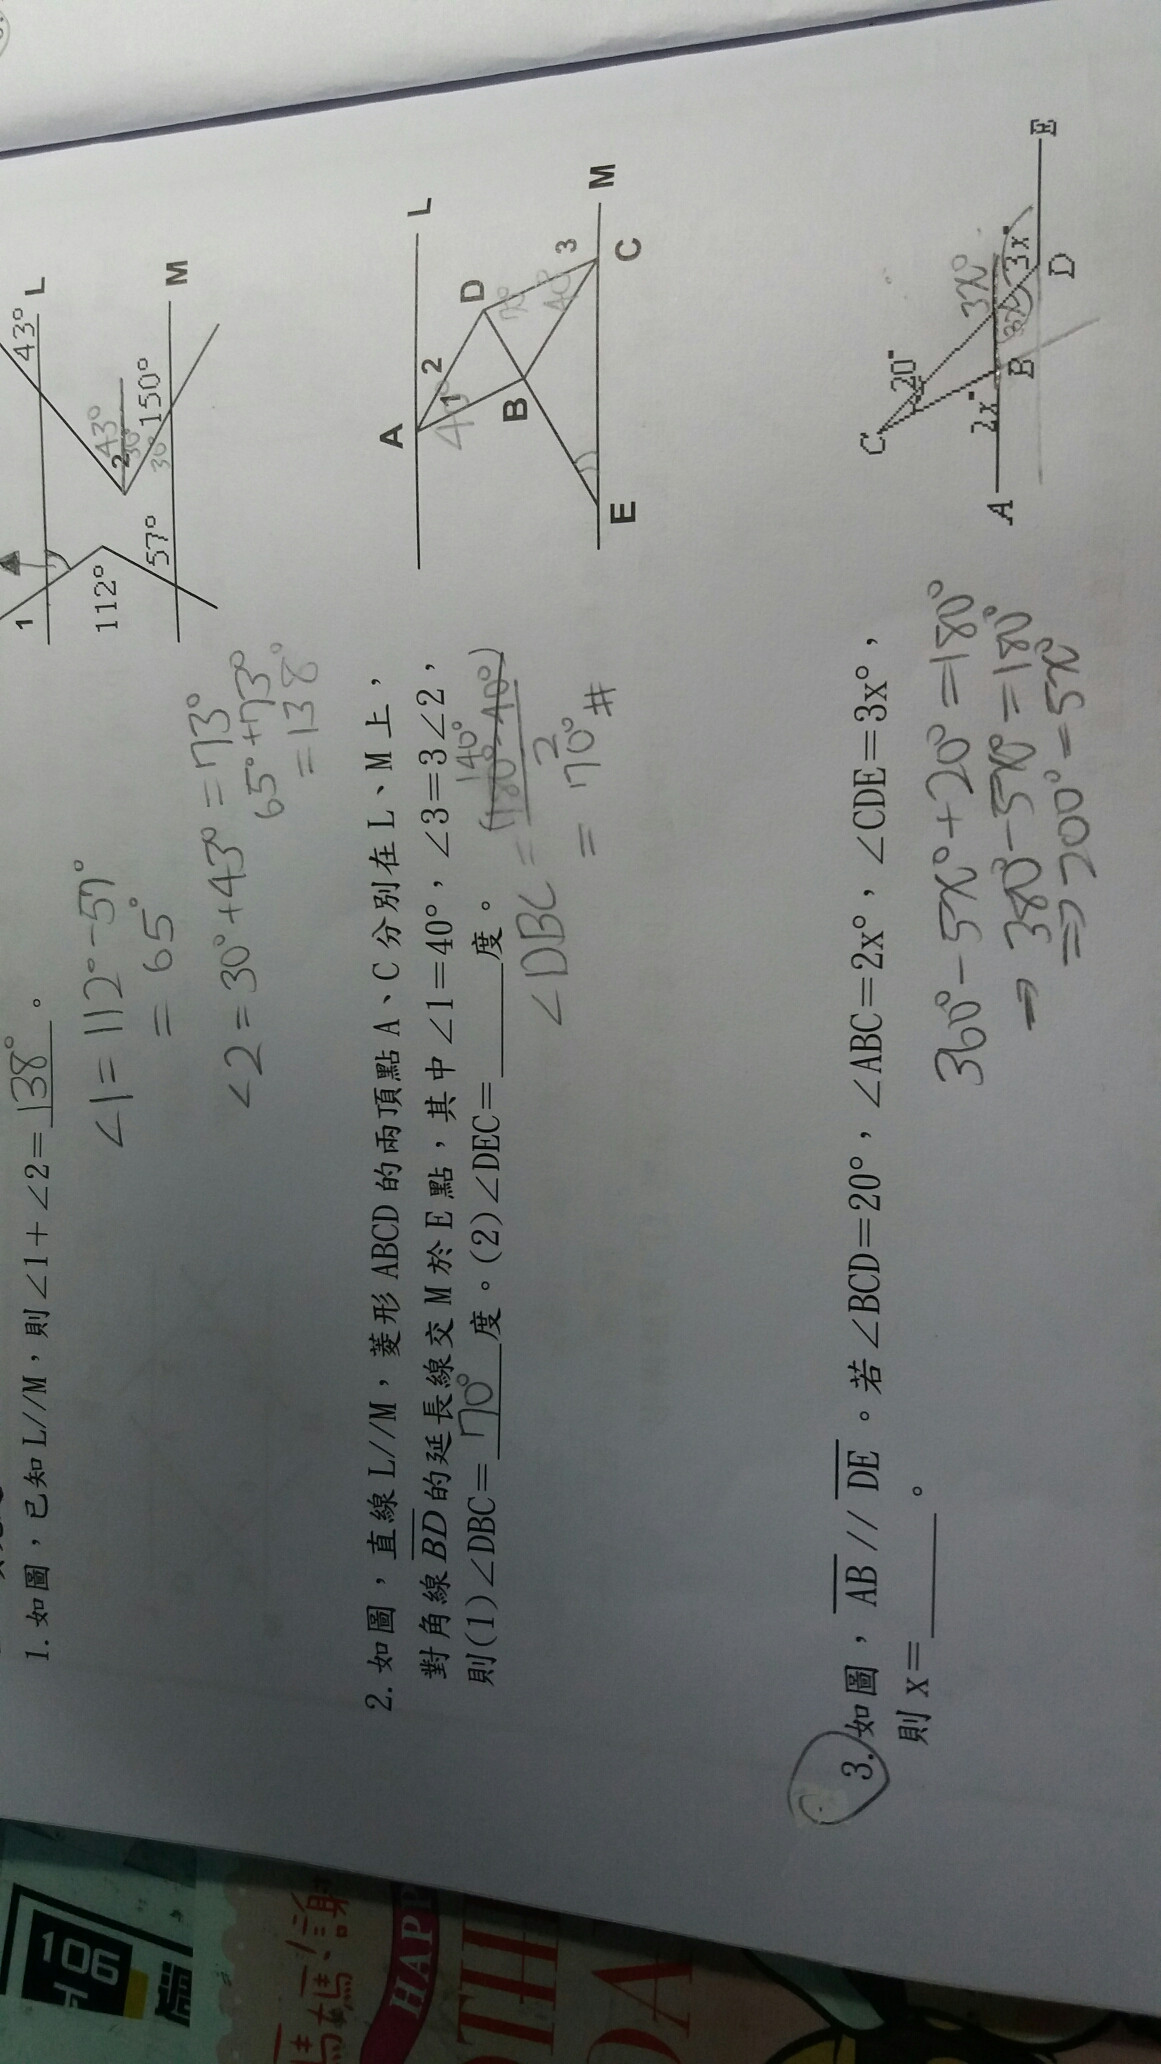 1.如圖，已知L//M，則∠1+∠2=138°。
∠1=112°-57°
=65°
∠2=30°+43°=73°
65°+73°
=138°
1
43°
L
112°
2
43°
30°
30°
150°
57°
M
2.如圖，直線L//M，菱形ABCD的兩頂點A、C分別在L、M上，
對角線BD的延長線交M於E點，其中∠1=40°，∠3=3∠2，
則(1)∠DBC=70°度。(2)∠DEC=____度。
∠DBC=(180°-40°)
140°
2
=70°#
A
L
40°
1
2
D
70°
B
40°
3
E
C
M
3.如圖，AB//DE。若∠BCD=20°，∠ABC=2x°，∠CDE=3x°，
則x=____。
360°-5x°+20°=180°
⇒380°-5x°=180°
⇒200°=5x°
C
20°
3x°
A
2x°
B
3x°
3x°
D
E
106
HAPP